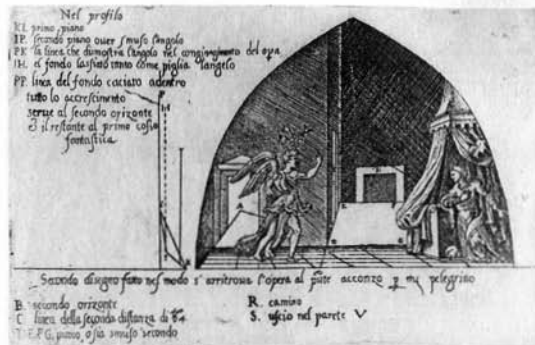 Nel profilo
KI. primo piano
IP. secondo piano over smuso l'angolo
PK la linea che dumostra l'angolo nel congiungimento del
IH. el fondo lassivo tanto come piglia l'angelo
PF. linea del fondo caciato adentro
tutto lo accrescimento
serve al secondo orizonte
e il restante al primo cosa
fantastica
H
A
Secondo disegno fatto nel modo s'arritrova l'opera al acconzo mi pelegrino
B. secondo orizonte
C linea della seconda distanza di
E.F.G. piano, o sia smuso secondo
R. camino
S. uscio nel parete V